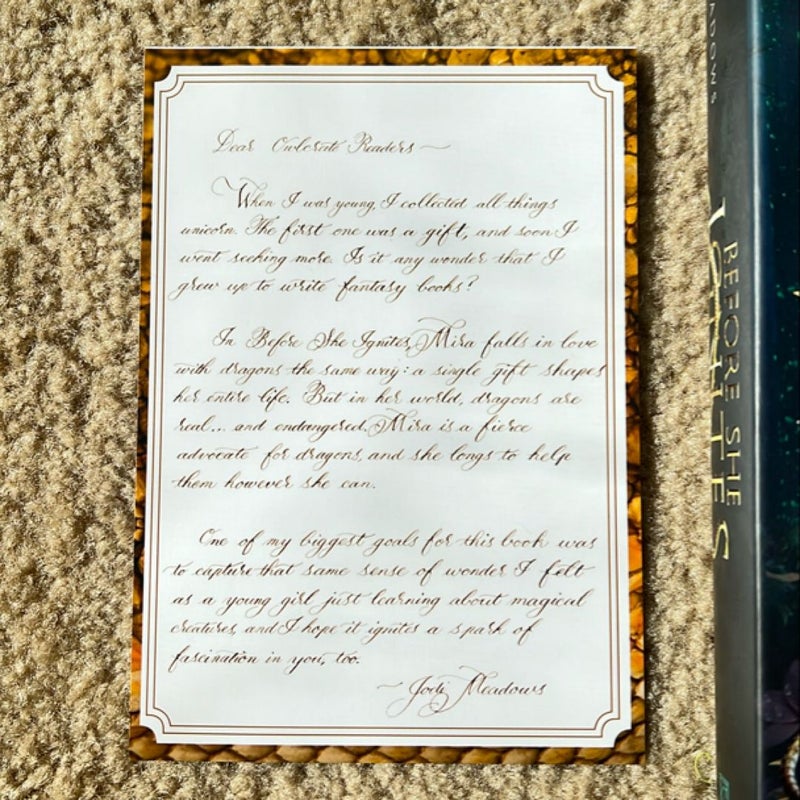 Dear Owlcrate Readers ~
When I was young, I collected all things
unicorn. The first one was a gift, and soon I
went seeking more. Is it any wonder that I
grew up to write fantasy books?
In Before She Ignites, Mira falls in love
with dragons the same way: a single gift shapes
her entire life. But in her world, dragons are
real... and endangered. Mira is a fierce
advocate for dragons, and she longs to help
them however she can.
One of my biggest goals for this book was
to capture that same sense of wonder I felt
as a young girl just learning about magical
creatures, and I hope it ignites a spark of
fascination in you, too.
~ Jodi Meadows
ADOWS
BEFORE SHE
IGNITES